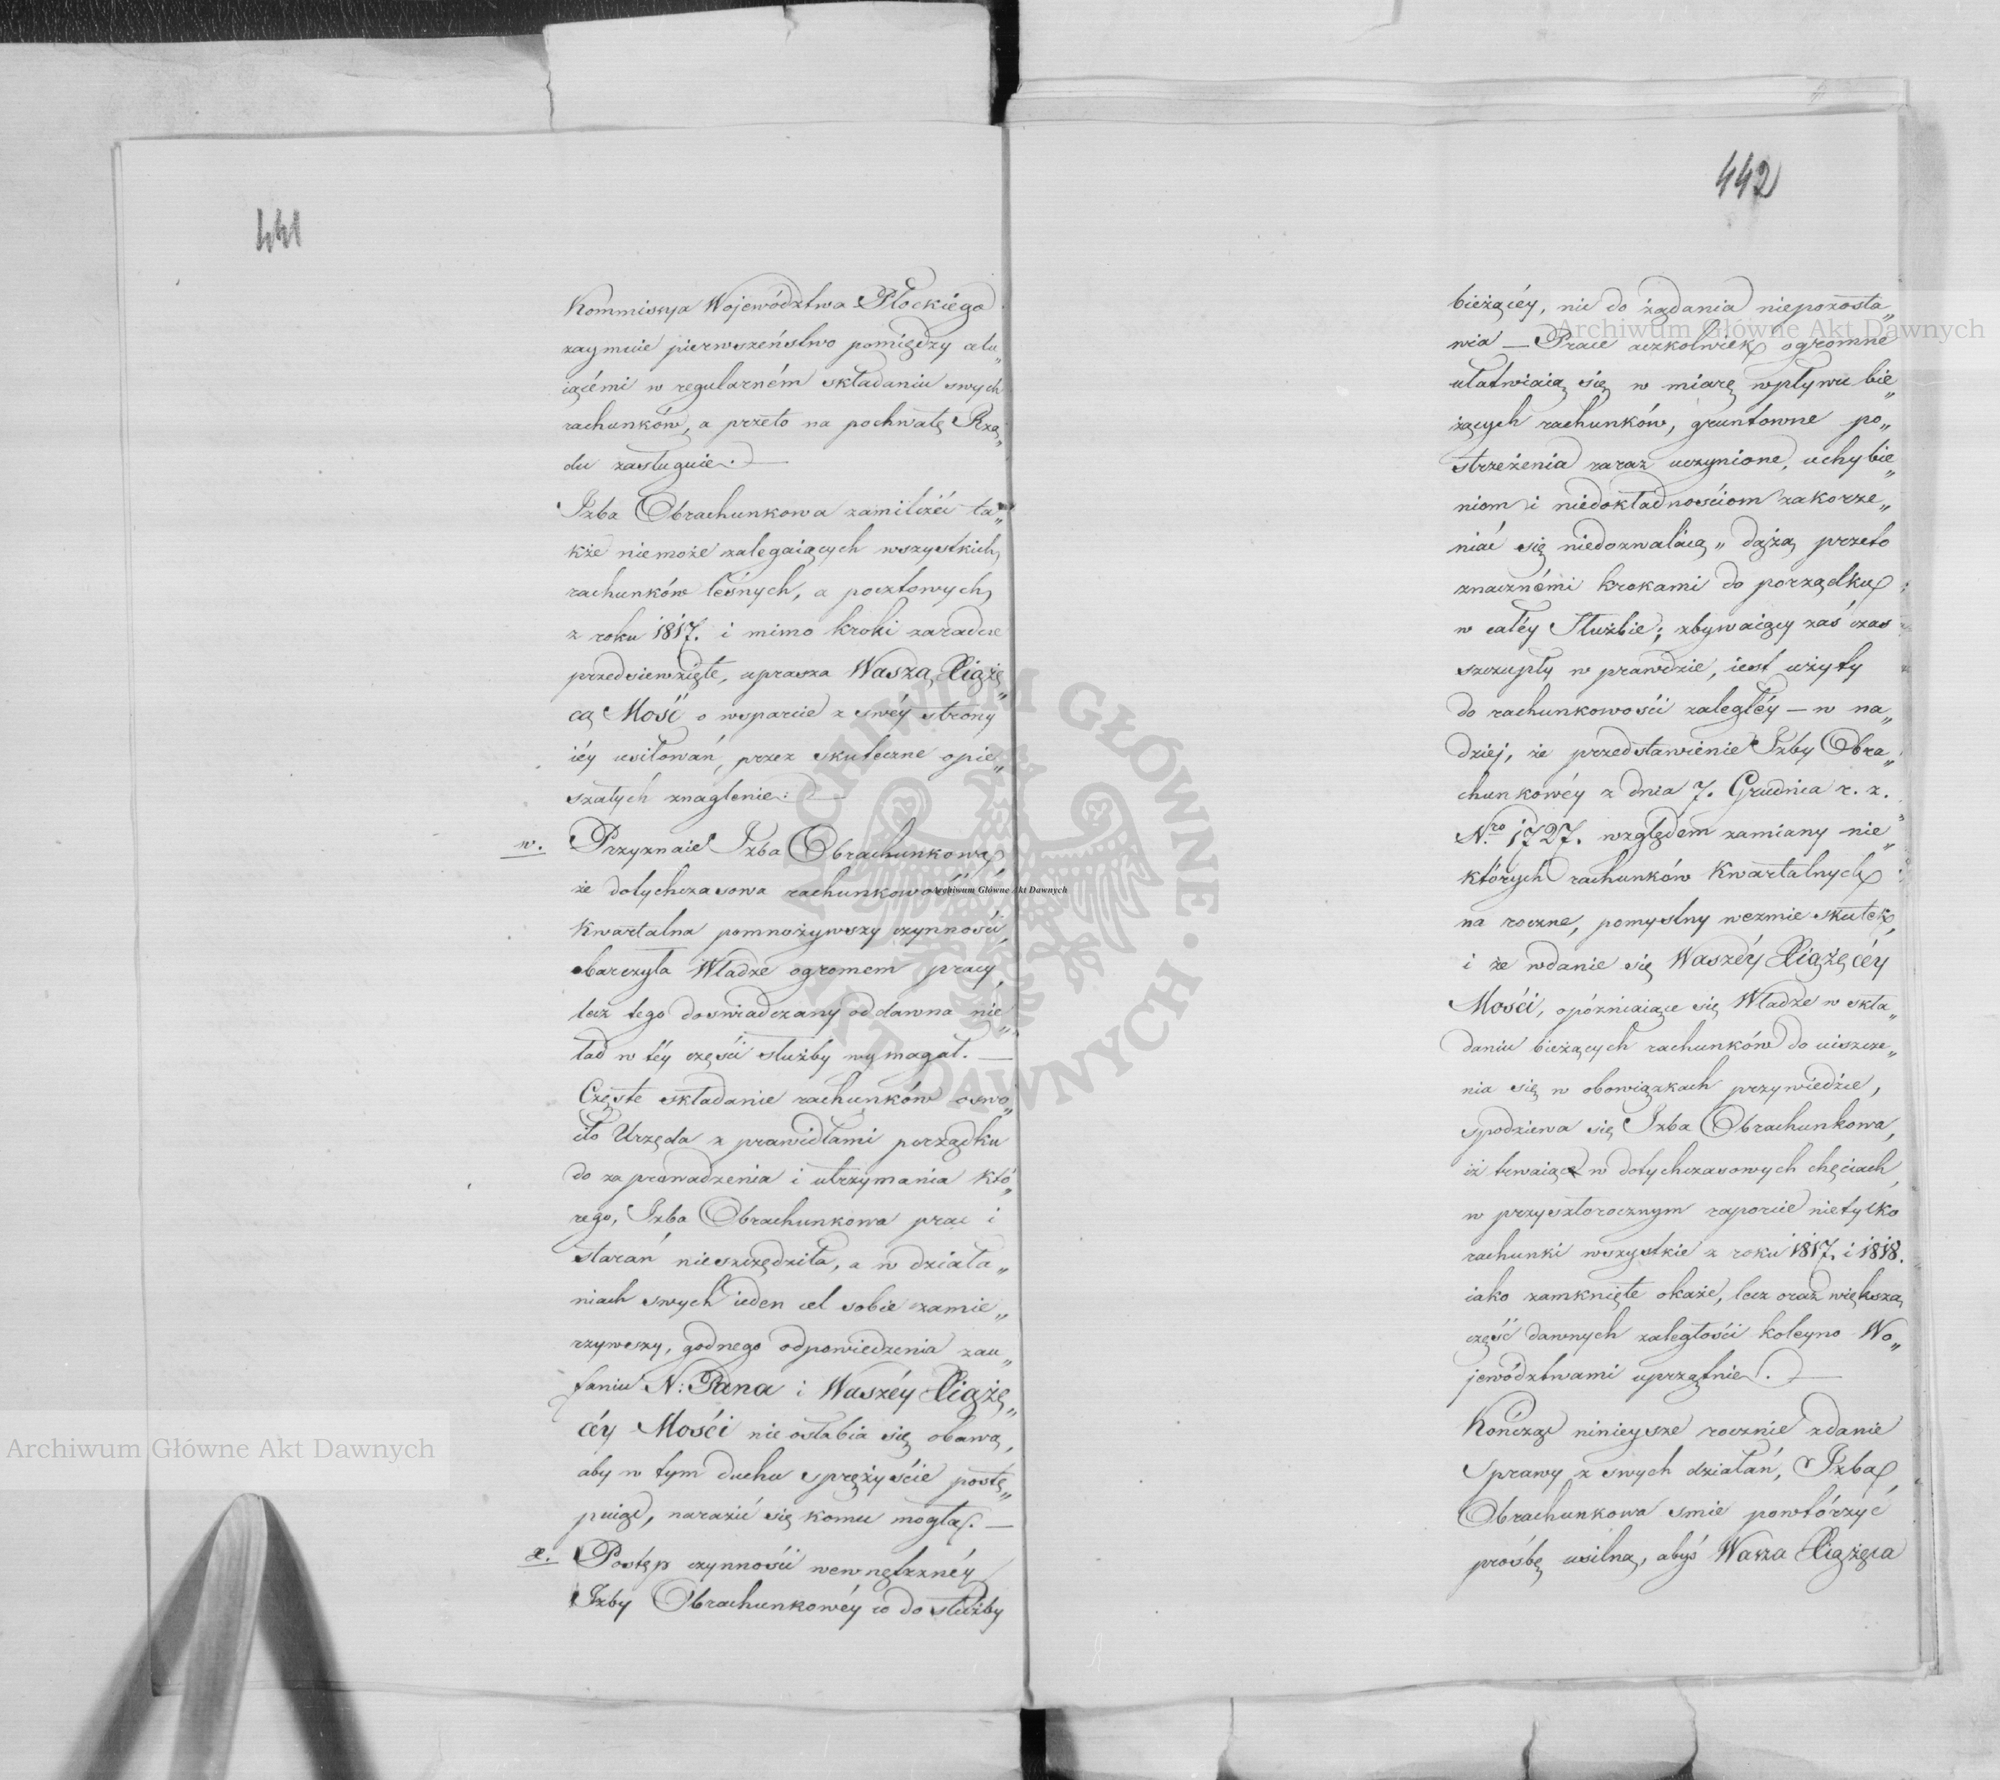 441
Kommissya Województwa Płockiego
zaymuie pierwszeństwo pomiędzy celu„
iącémi w regularném składaniu swych
rachunków, a przeto na pochwałę Rzą„
du zasługuie. —
Izba Obrachunkowa zamilczéć ta„
kże niemoże zalegaiących wszystkich
rachunków leśnych, a pocztowych
z roku 1817. i mimo kroki zaradcze
przedsiewzięte, uprasza Waszą Xiążę„
cą Mość o wsparcie z swéy strony
iéy usiłowań, przez skuteczne opie„
szałych znaglenie: —
w. Przyznaie Izba Obrachunkowa,
że dotychczasowa rachunkowość
kwartalna pomnożywszy czynności,
obarczyła Władze ogromem pracy,
lecz tego doswiadczany oddawna nie„
ład w téy części służby wymagał. —
Częste składanie rachunków oswo„
iło Urzęda z prawidłami porządku
do zaprowadzenia i utrzymania któ„
rego, Izba Obrachunkowa prac i
starań nieszczędziła, a w działa„
niach swych ieden cel sobie zamie„
rzywszy, godnego odpowiedzenia zau„
faniu N: Pana i Waszéy Xiążę„
céy Mości nie osłabia się obawą,
aby w tym duchu sprężyście postę„
puiąc, narazić się komu mogła. —
x. Postęp czynności wewnętrznéy
Izby Obrachunkowéy co do służby
442
bieżącéy, nic do żądania niepozosta„
wia — Prace aczkolwiek ogromne
ułatwiaią się w miarę wpływu bie„
żących rachunków, gruntowne po„
strzeżenia zaraz uczynione, uchybie„
niom i niedokładnościom zakorze„
niać się niedozwalaią „ dążą przeto
znacznémi krokami do porządku
w całéy Służbie; zbywaiący zaś czas
szczupły w prawdzie, iest użyty
do rachunkowości zaległéy — w na„
dziej, że przedstawienie Izby Obra„
chunkowéy z dnia 7. Grudnia r. z.
Nro 1727. względem zamiany nie„
których rachunków Kwartalnych
na roczne, pomyslny wezmie skutek,
i że wdanie się Waszéy Xiążęcéy
Mości, opóźniaiące się Władze w skła„
daniu bieżących rachunków do uiszcze„
nia się w obowiązkach przywiedzie,
spodziewa się Izba Obrachunkowa,
iż trwaiąc w dotychczasowych chęciach,
w przyszłorocznym raporcie nietylko
rachunki wszystkie z roku 1817. i 1818.
iako zamknięte okaże, lecz oraz większą
część dawnych zaległości koleyno Wo„
jewództwami uprzątnie. —
Kończąc ninieysze rocznie zdanie
sprawy z swych działań, Izba
Obrachunkowa smie powtórzyć
prośbę usilną, abyś Wasza Xiążęca
Archiwum Główne Akt Dawnych
Archiwum Główne Akt Dawnych
Archiwum Główne Akt Dawnych
ARCHIWUM GŁÓWNE · AKT DAWNYCH ·